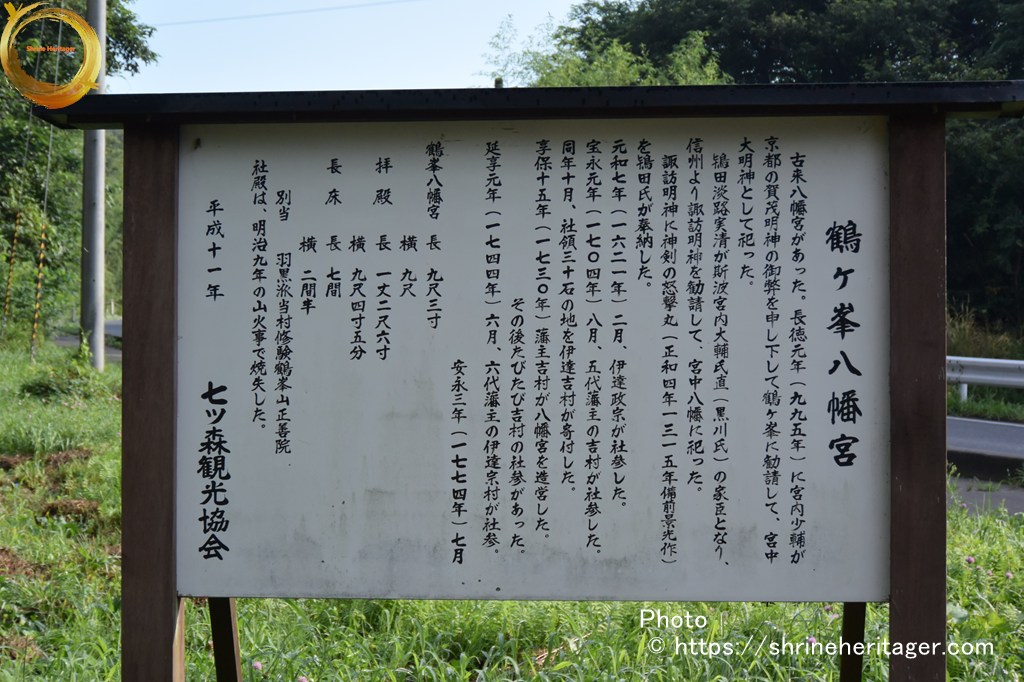 Shrine Heritager
鶴ヶ峯八幡宮
古来八幡宮があった。長徳元年(九九五年)に宮内少輔が
京都の賀茂明神の御弊を申し下して鶴ヶ峯に勧請して、宮中
大明神として祀った。
鴇田淡路実清が斯波宮内大輔氏直(黒川氏)の家臣となり、
信州より諏訪明神を勧請して、宮中八幡に祀った。
諏訪明神に神剣の怒撃丸(正和四年一三一五年備前景光作)
を鴇田氏が奉納した。
元和七年(一六二一年)二月、伊達政宗が社参した。
宝永元年(一七〇四年)八月、五代藩主の吉村が社参した。
同年十月、社領三十石の地を伊達吉村が寄付した。
享保十五年(一七三〇年)藩主吉村が八幡宮を造営した。
その後たびたび吉村の社参があった。
延享元年(一七四四年)六月、六代藩主の伊達宗村が社参。
安永三年(一七七四年)七月
鶴峯八幡宮 長 九尺三寸
横 九尺
拝殿 長 一丈二尺六寸
横 九尺四寸五分
長床 長 七間
横 二間半
別当 羽黒派当村修験鶴峯山正善院
社殿は、明治九年の山火事で焼失した。
平成十一年
七ツ森観光協会
Photo
© https://shrineheritager.com